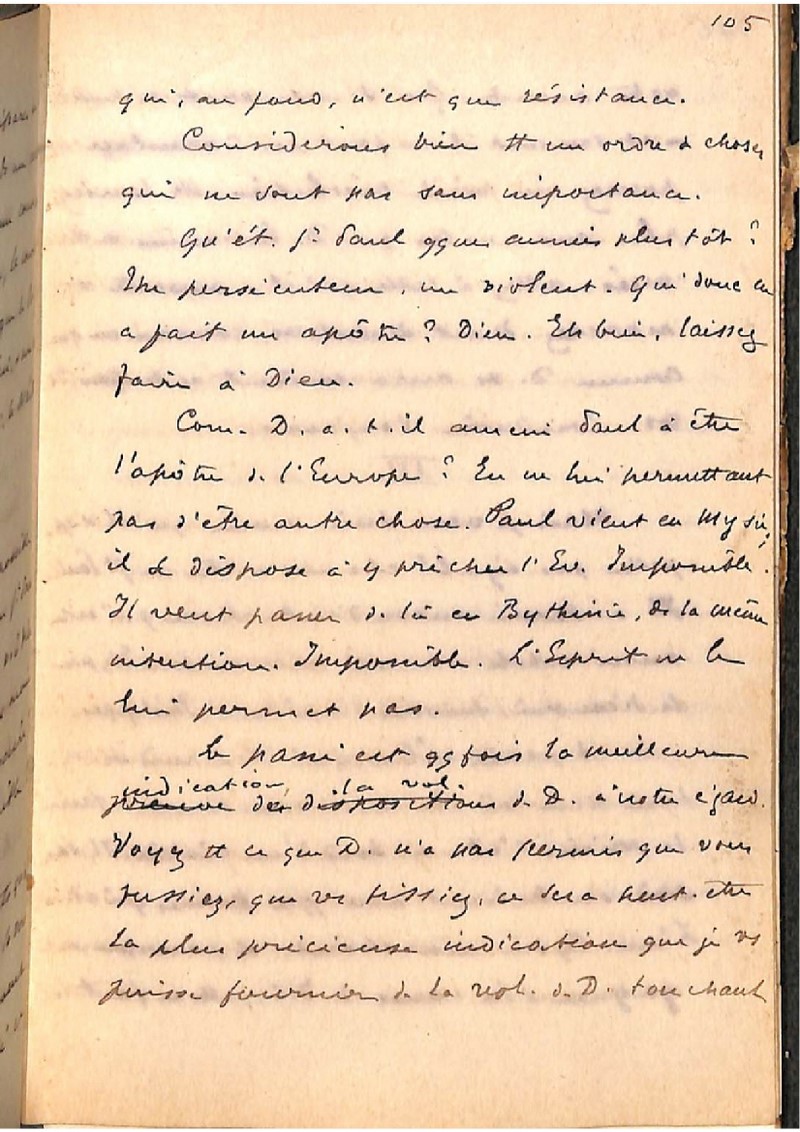 105
qui, au fond, n'est que résistance.
Considérons bien tt un ordre de choses
qui ne sont pas sans importance.
Qu'ét. St Paul qques années plus tôt ?
Un persécuteur, un violent. Qui donc en
a fait un apôtre ? Dieu. Eh bien, laissez
faire à Dieu.
Com. D. a.t.il amené Paul à être
l'apôtre de l'Europe ? En ne lui permettant
pas d'être autre chose. Paul vient en Mysie,
il se dispose à y prêcher l'Ev. Impossible.
Il veut passer de là en Bythinie, ds la même
intention. Impossible. L'Esprit ne le
lui permet pas.
Le passé est qqfois la meilleure
indication, la vol.
preuve des dispositions de D. à notre égard.
Voyez tt ce que D. n'a pas permis que vous
fussiez, que vs fissiez, ce sera peut-être
la plus précieuse indication que je vs
puisse fournir de la vol. de D. touchant